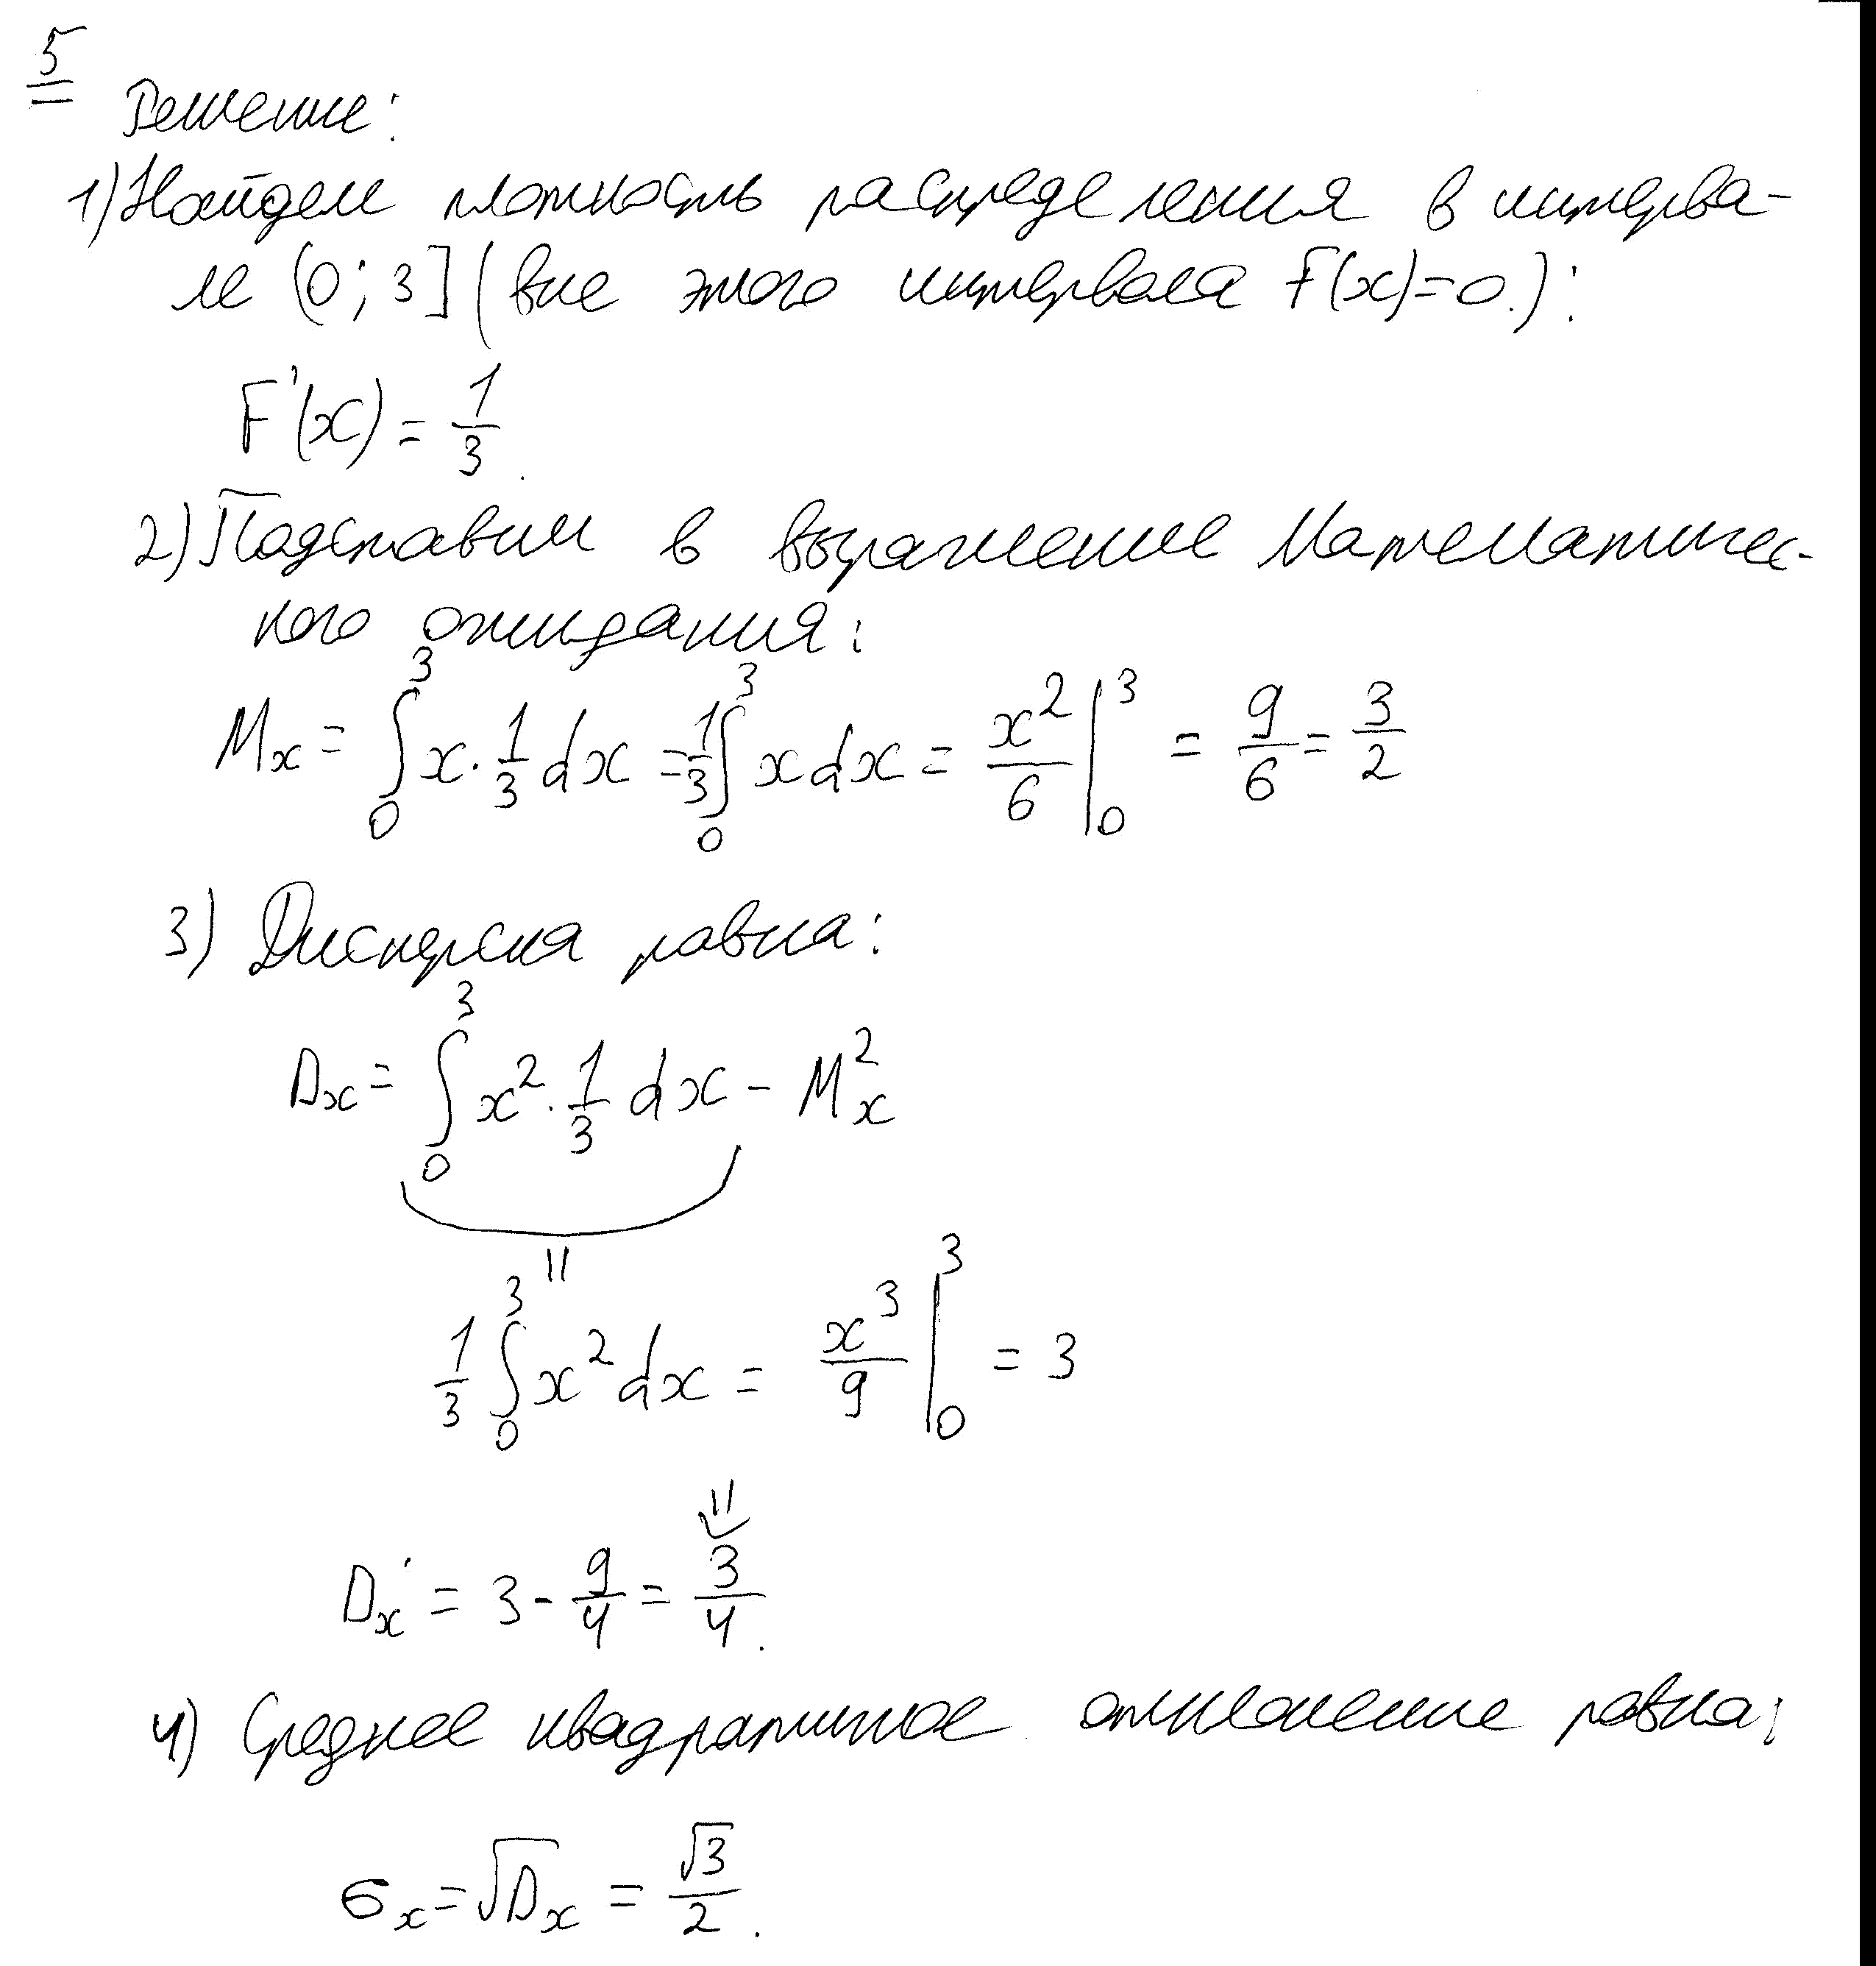 5
Решение:
1) Найдем плотность распределения в интерва-
ле (0; 3] (вне этого интервала F(x)=0.):
F'(x) = 1/3.
2) Подставим в выражение Математичес-
кого ожидания:
Mx = ∫₀³ x · 1/3 dx = 1/3 ∫₀³ x dx = x²/6 |₀³ = 9/6 = 3/2
3) Дисперсия равна:
Dx = ∫₀³ x² · 1/3 dx - Mx²
||
1/3 ∫₀³ x² dx = x³/9 |₀³ = 3
||
Dx = 3 - 9/4 = 3/4.
4) Среднее квадратичное отклонение равна:
σx = √Dx = √3/2.